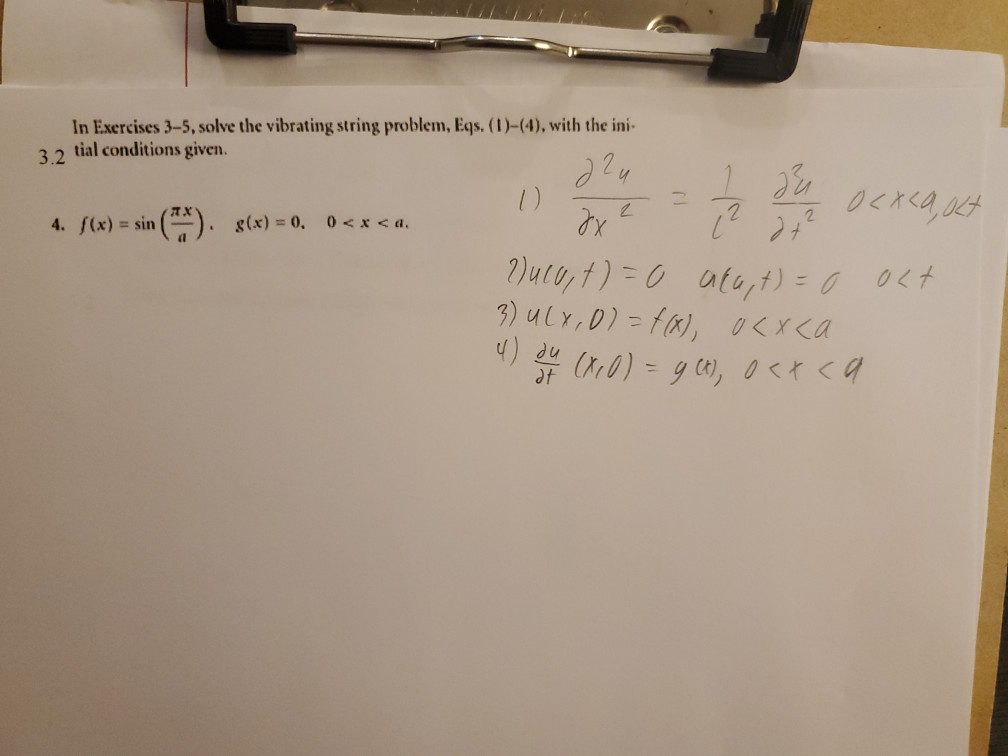 In Exercises 3–5, solve the vibrating string problem, Eqs. (1)–(4), with the ini-
3.2 tial conditions given.
4. f(x) = sin(πx/a), g(x) = 0, 0 < x < a.
1) ∂²u/∂x² = 1/c² ∂²u/∂t² 0<x<a, 0<t
2) u(0,t) = 0 u(a,t) = 0 0<t
3) u(x,0) = f(x), 0<x<a
4) ∂u/∂t (x,0) = g(x), 0<x<a